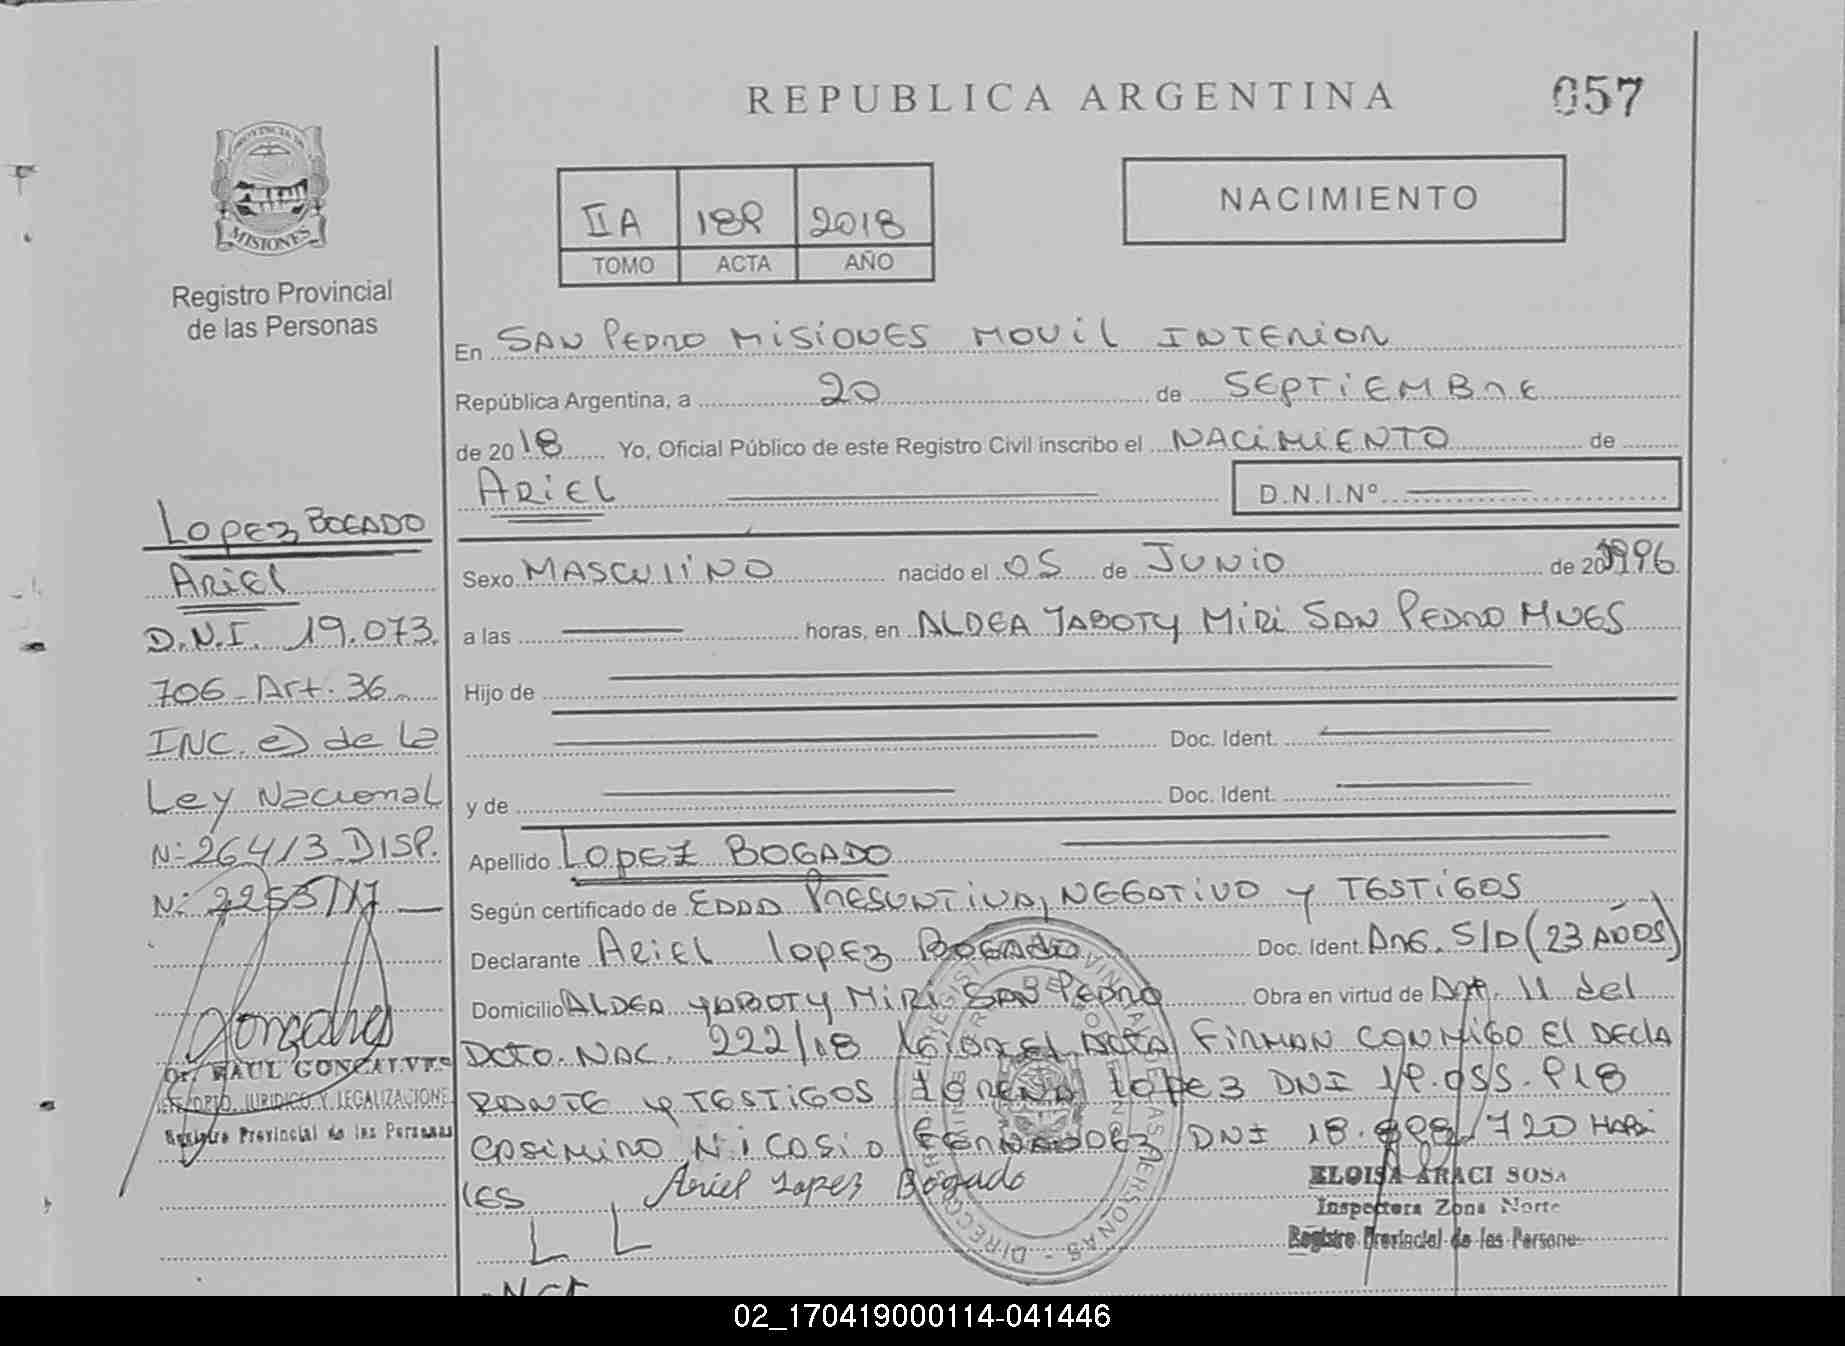 REPUBLICA ARGENTINA
057
PROVINCIA DE
MISIONES
Registro Provincial
de las Personas
IIA 189 2018
TOMO ACTA AÑO
NACIMIENTO
En SAN PEDRO MISIONES MOVIL INTERIOR
República Argentina, a 20 de SEPTIEMBRE
de 2018 Yo, Oficial Público de este Registro Civil inscribo el NACIMIENTO de
ARIEL D.N.I.Nº
Sexo MASCULINO nacido el 05 de JUNIO de 1996
a las horas, en ALDEA YABOTY MIRI SAN PEDRO MNES
Hijo de
Doc. Ident.
y de Doc. Ident.
Apellido LOPEZ BOGADO
Según certificado de EDAD PRESUNTIVA, NEGATIVO y TESTIGOS
Declarante ARIEL LOPEZ BOGADO Doc. Ident. ARG. S/D (23 AÑOS)
Domicilio ALDEA YABOTY MIRI SAN PEDRO Obra en virtud de Art. 11 del
DCTO. NAC. 222/18 EL ACTA FIRMAN CONMIGO EL DECLA
RANTE y TESTIGOS LORENA LOPEZ DNI
CASIMIRO NICASIO FERNANDEZ DNI
LES
Ariel Lopez Bogado
L L
ELOISA ARACI SOSA
Inspectora Zona Norte
Registro Provincial de las Personas
LOPEZ BOGADO
ARIEL
D.N.I. 19.073.
706 - Art. 36
INC. e) de la
Ley Nacional
Nº 26413 DISP.
Nº 2255/17
Goncalves
Dr. RAUL GONCALVES
DPTO. JURIDICO Y LEGALIZACIONES
Registro Provincial de las Personas
02_170419000114-041446